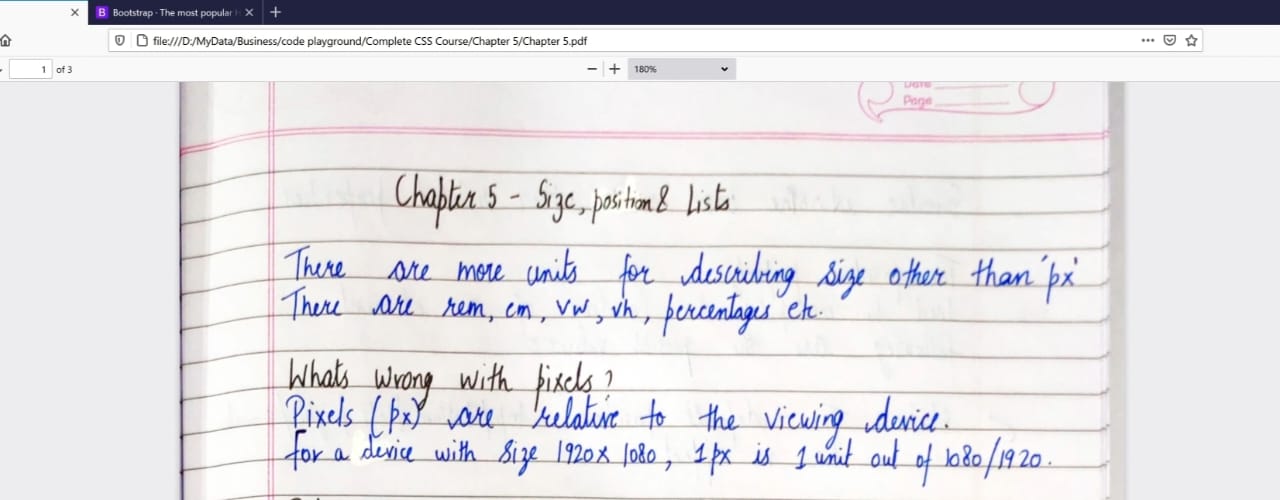 Bootstrap - The most popular
file:///D:/MyData/Business/code playground/Complete CSS Course/Chapter 5/Chapter 5.pdf
1 of 3
180%
Date
Page
Chapter 5 - Size, position & Lists
There are more units for describing size other than 'px'
There are rem, cm, vw, vh, percentages etc.
Whats wrong with pixels?
Pixels (px) are relative to the viewing device.
for a device with size 1920x1080, 1px is 1 unit out of 1080/1920.